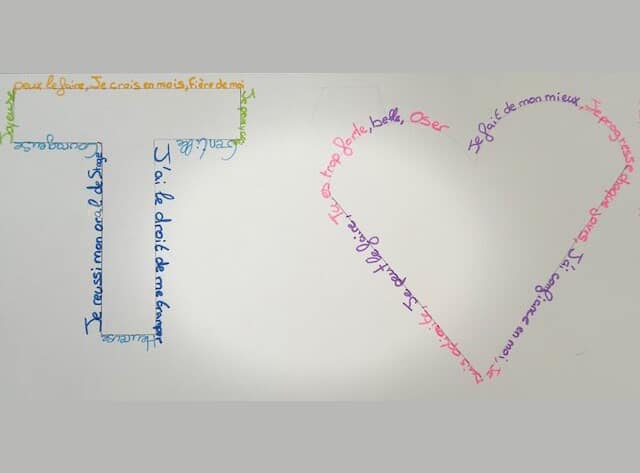 peux le faire, Je crois en mois, Fière de moi
Joyeuse
Courageuse
Gentille
Je reussi mon oral de Stage
J'ai le droit de me tromper
Heureuse
Tu es trop forte, belle, Oser
Je fait de mon mieux, Je progresse chaque jours, J'ai confiance en moi, Je
suis Je peut le faire,